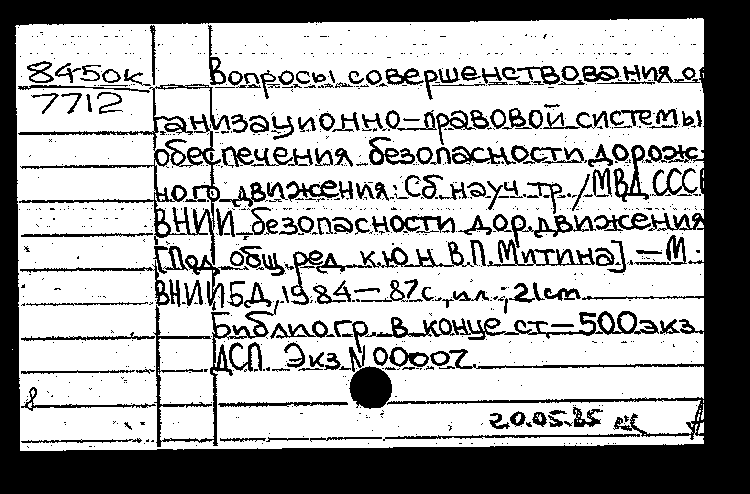 8450к
7712
Вопросы совершенствования ор
ганизационно-правовой системы
обеспечения безопасности дорож-
ного движения: Сб. науч. тр. / МВД СССР
ВНИИ безопасности дор. движения
[Под общ. ред. к.ю.н. В.П. Митина]. — М.:
ВНИИБД, 1984 — 87с., ил.; 21cm.
Библиогр. в конце ст. — 500 экз.
ДСП. Экз N 00007.
8
20.05.85